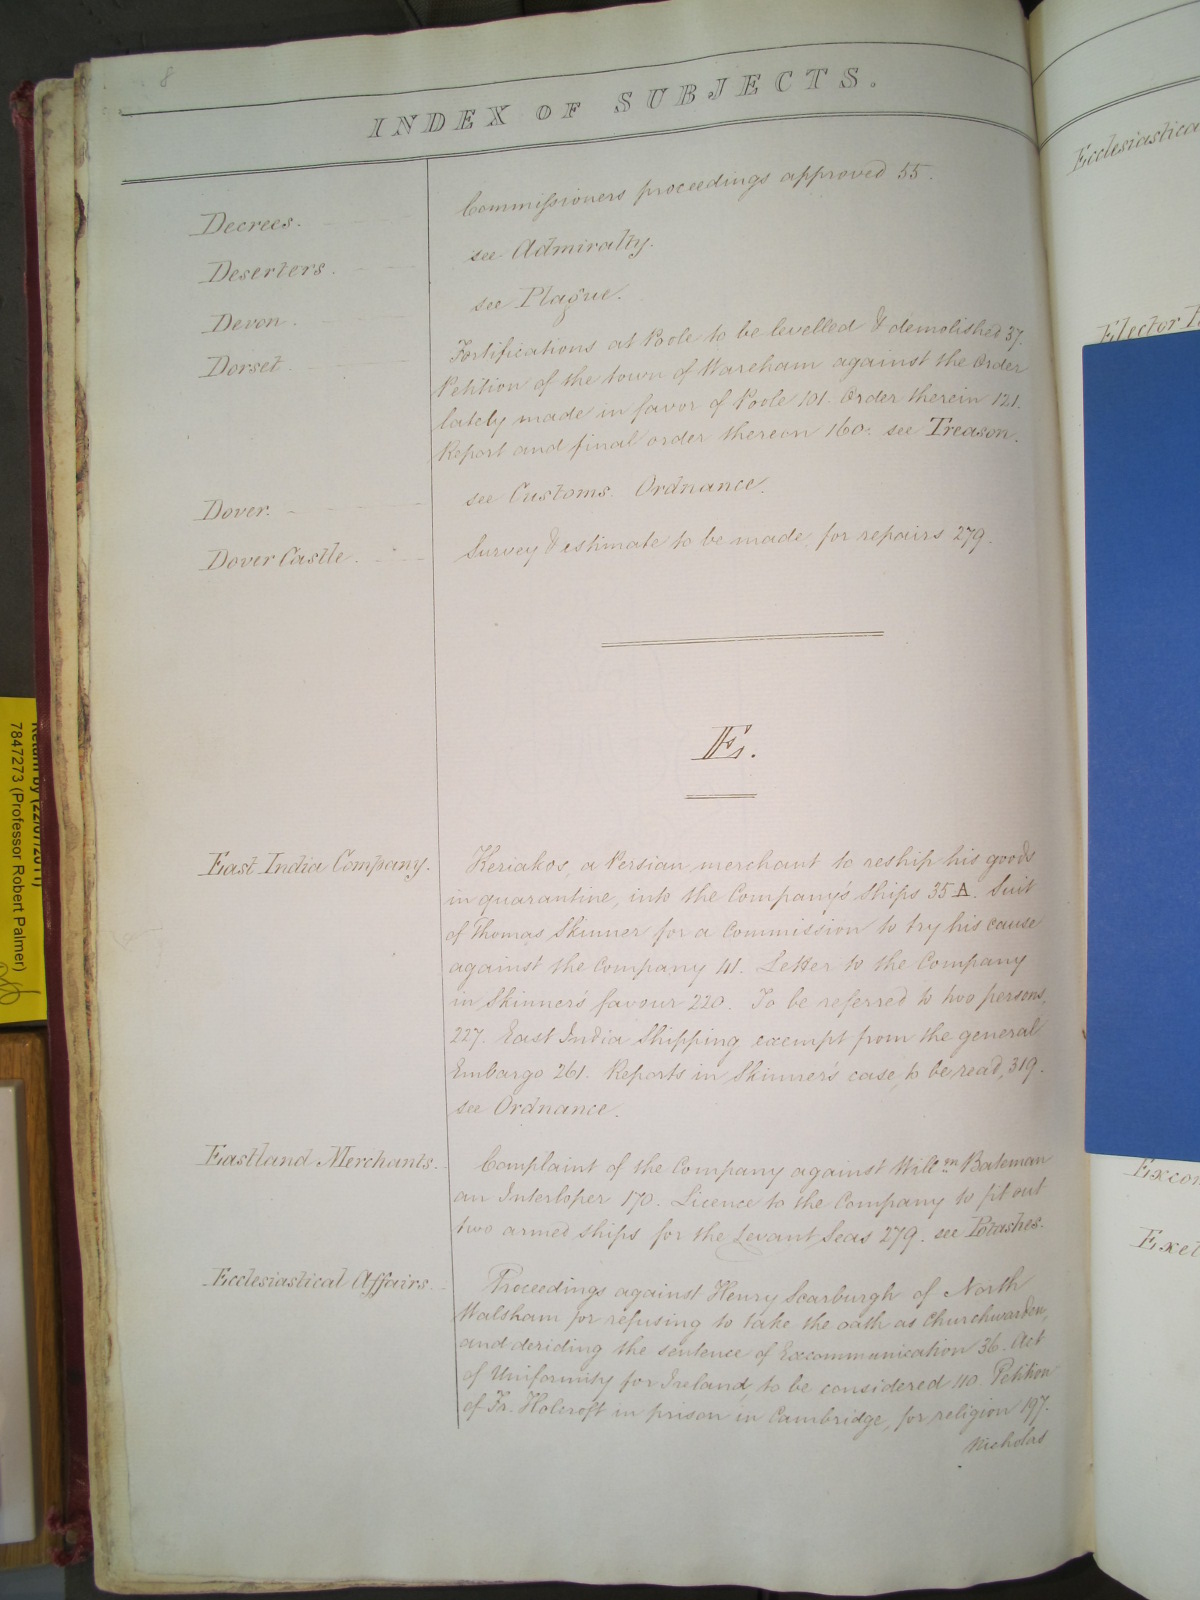 8
INDEX OF SUBJECTS.
Decrees. Commissioners proceedings approved 55.
Deserters. see Admiralty.
Devon. see Plague.
Dorset. Fortifications at Poole to be levelled & demolished 37.
Petition of the town of Wareham against the Order
lately made in favor of Poole 101. Order therein 121.
Report and final order thereon 160. see Treason.
Dover. see Customs. Ordnance.
Dover Castle. Survey & estimate to be made, for repairs 279.
E.
East India Company. Keriakos, a Persian merchant to reship his goods
in quarantine, into the Company's Ships 35 A. Suit
of Thomas Skinner for a Commission to try his cause
against the Company 41. Letter to the Company
in Skinner's favour 220. To be referred to two persons,
227. East India Shipping exempt from the general
Embargo 261. Reports in Skinner's case, to be read, 319.
see Ordnance.
Eastland Merchants. Complaint of the Company against Willm Bateman
an Interloper 170. Licence to the Company to fit out
two armed ships for the Levant Seas 279. see Potashes.
Ecclesiastical Affairs. Proceedings against Henry Scarburgh of North
Walsham for refusing to take the oath as Churchwarden,
and deriding the sentence of Excommunication 36. Act
of Uniformity for Ireland, to be considered 110. Petition
of Fr. Holcroft in prison in Cambridge, for religion 197.
Nicholas
Ecclesiastica
Elector
Excom
Exet
Return by (22/07/2011)
7847273 (Professor Robert Palmer)